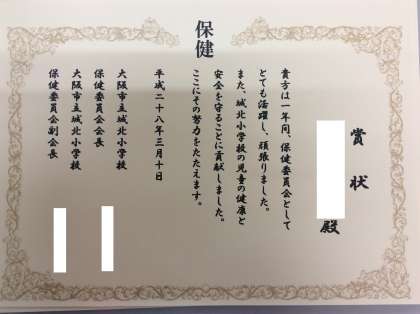 保健
賞状
殿
貴方は一年間、保健委員会として
とても活躍し、頑張りました。
また、城北小学校の児童の健康と
安全を守ることに貢献しました。
ここにその努力をたたえます。
平成二十八年三月十日
大阪市立城北小学校
保健委員会会長
大阪市立城北小学校
保健委員会副会長